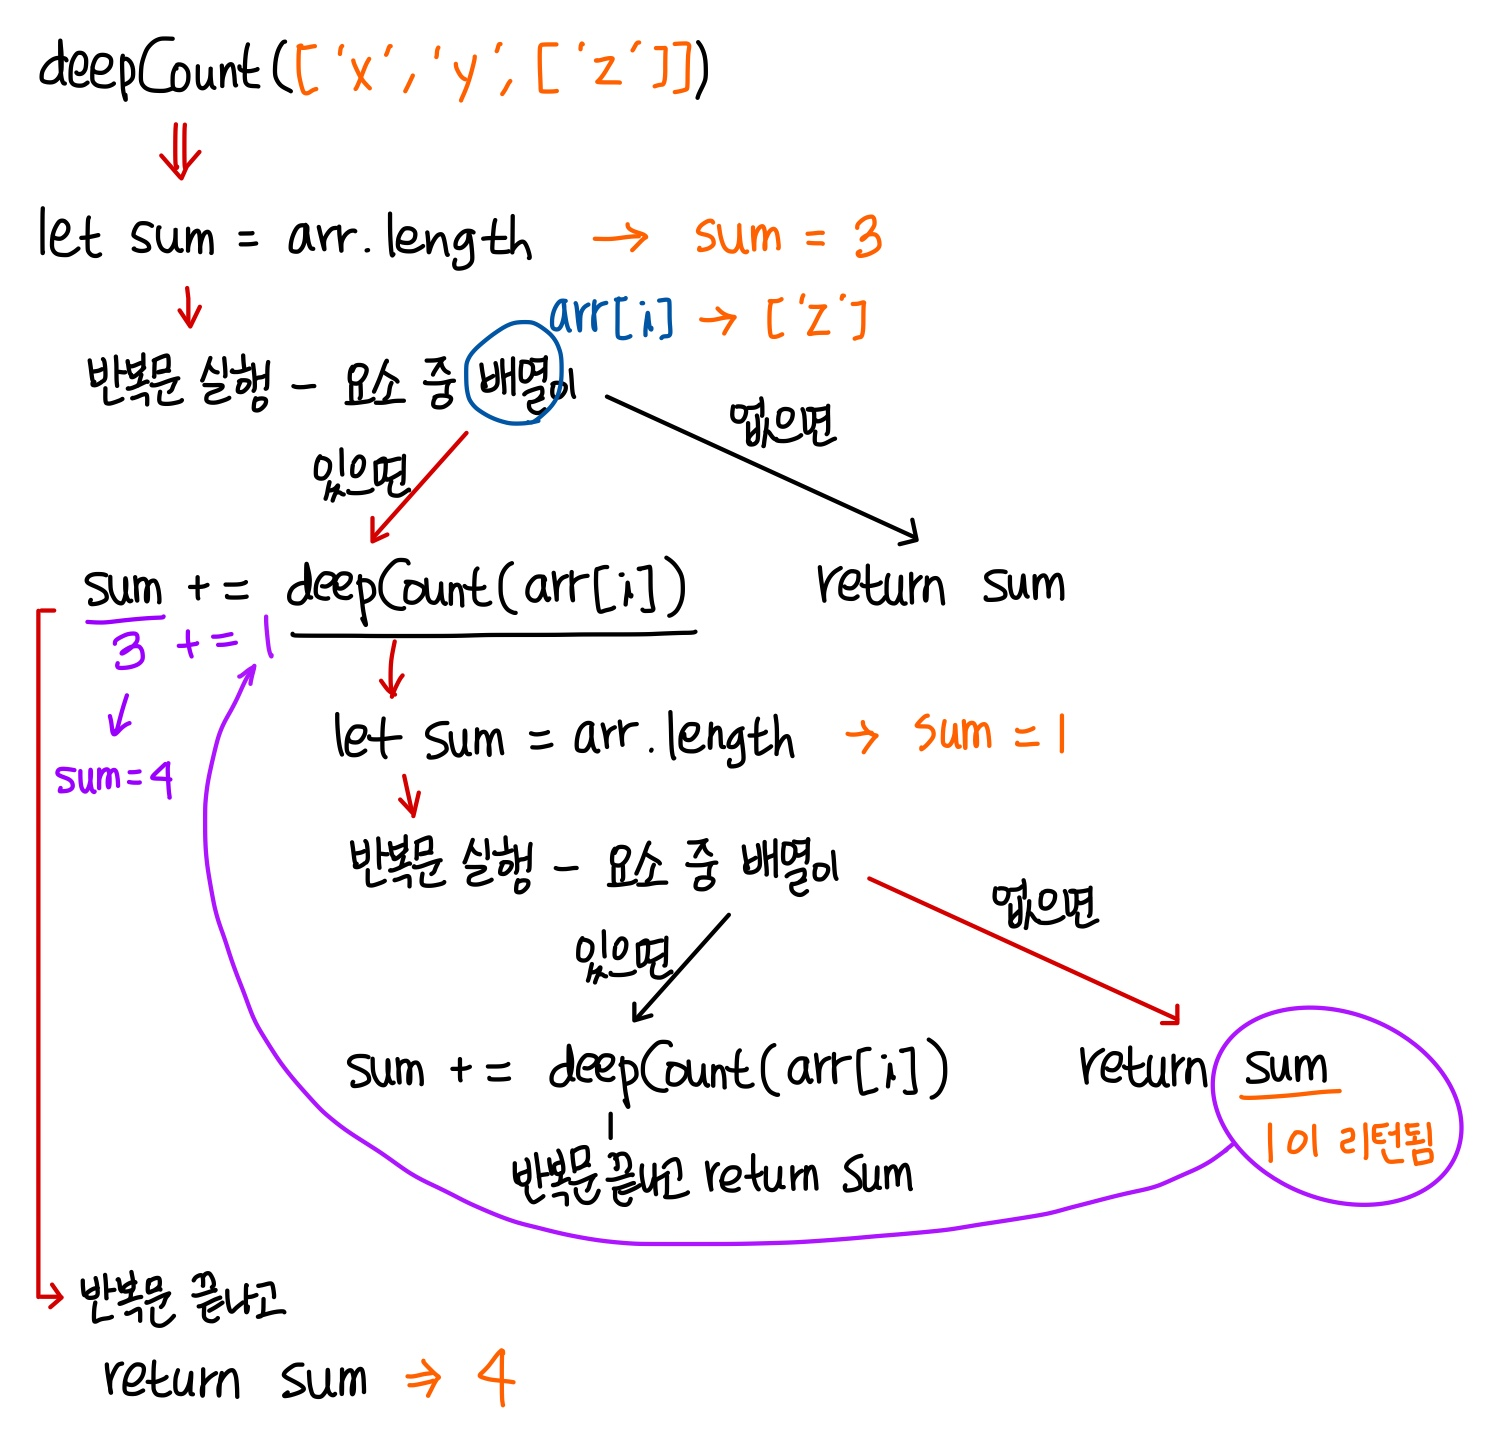 deepCount(['x', 'y', ['z']])
let sum = arr.length → sum = 3
arr[i] → ['z']
반복문 실행 - 요소 중 배열이
없으면
있으면
sum += deepCount(arr[i])
return sum
3 += 1
let sum = arr.length → sum = 1
sum=4
반복문 실행 - 요소 중 배열이
없으면
있으면
sum += deepCount(arr[i])
return sum
1이 리턴됨
반복문 끝나고 return sum
반복문 끝나고
return sum ⇒ 4